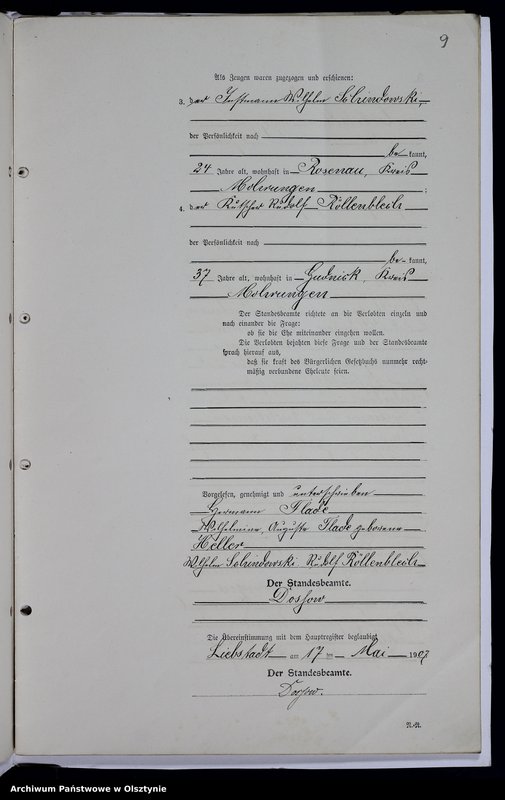 9
Als Zeugen waren zugezogen und erschienen:
3. der Instmann Wilhelm Schindowski,
der Persönlichkeit nach
be kannt,
24 Jahre alt, wohnhaft in Rosenau, Kreis
Mohrungen ;
4. der Kutscher Rudolf Röllenbleck
der Persönlichkeit nach
be- kannt,
37 Jahre alt, wohnhaft in Gudnick, Kreis
Mohrungen
Der Standesbeamte richtete an die Verlobten einzeln und
nach einander die Frage:
ob sie die Ehe miteinander eingehen wollen.
Die Verlobten bejahten diese Frage und der Standesbeamte
sprach hierauf aus,
daß sie kraft des Bürgerlichen Gesetzbuchs nunmehr recht-
mäßig verbundene Eheleute seien.
Vorgelesen, genehmigt und unterschrieben
Hermann Flade
Wilhelmine, Auguste Flade geborene
Heller
Wilhelm Schindowski. Rudolf Röllenbleck
Der Standesbeamte.
Dossow
Die Übereinstimmung mit dem Hauptregister beglaubigt
Liebstadt am 17 ten Mai 1907
Der Standesbeamte.
Dossow.
Archiwum Państwowe w Olsztynie